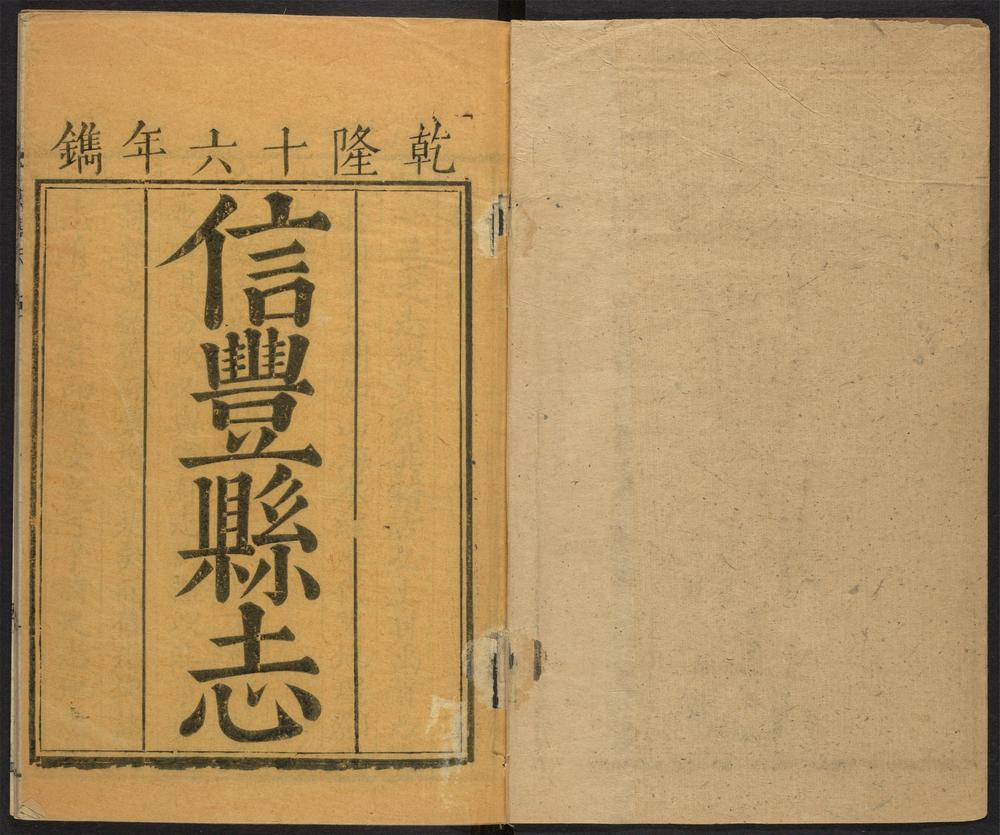 乾隆十六年鐫
信豐縣志